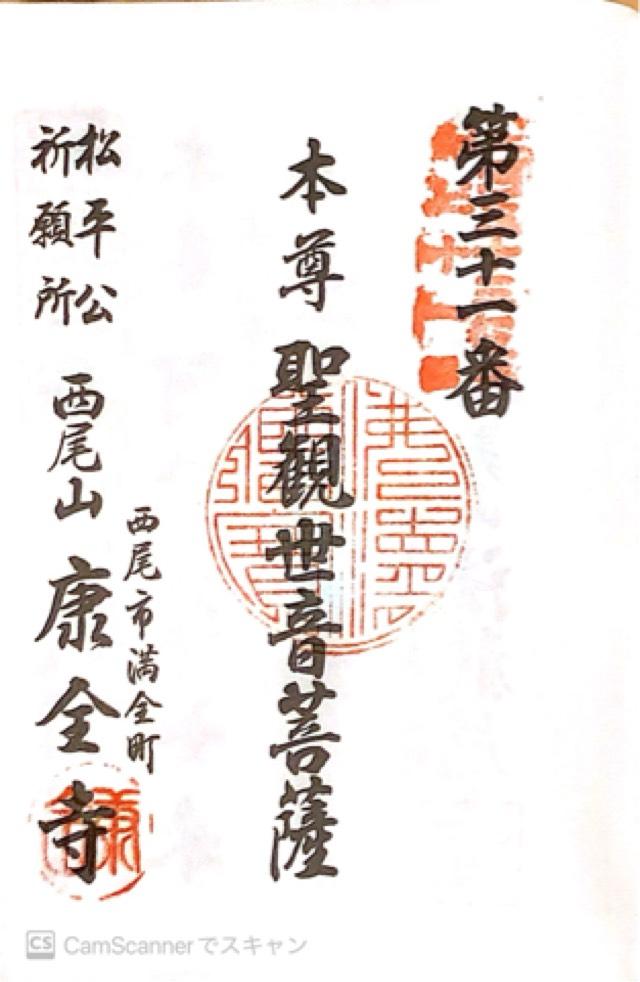 第三十一番
本尊 聖觀世音菩薩
西尾市満全町
松平公
祈願所
西尾山 康全寺
CS CamScannerでスキャン